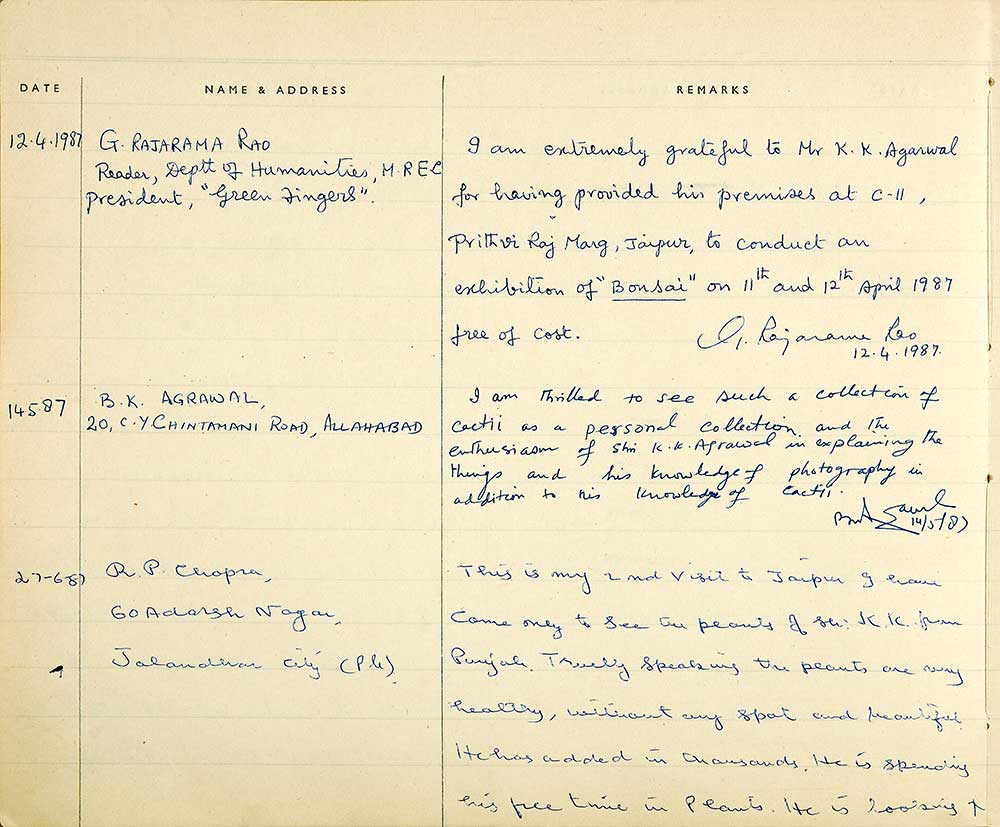 DATE NAME & ADDRESS REMARKS
12.4.1987
G. RAJARAMA RAO
Reader, Deptt of Humanities, M.R.E.C
President, "Green Fingers".
I am extremely grateful to Mr K.K. Agarwal
for having provided his premises at C-11,
Prithvi Raj Marg, Jaipur, to conduct an
exhibition of "Bonsai" on 11th and 12th April 1987
free of cost.
G. Rajarama Rao
12.4.1987.
14.5.87
B.K. AGRAWAL,
20, C.Y CHINTAMANI ROAD, ALLAHABAD
I am thrilled to see such a collection of
cactii as a personal collection and the
enthusiasm of Shri K.K. Agrawal in explaining the
things and his knowledge of photography in
addition to his knowledge of cactii.
14/5/87
27-6-87
R.P. Chopra,
60 Adarsh Nagar,
Jalandhar City (Pb)
This is my 2nd Visit to Jaipur I have
Come only to See the plants of Sh: K.K. from
Punjab. Truely Speaking the plants are very
healthy, without any spot and beautiful.
He has added in thousands. He is spending
his free time in Plants. He is looking